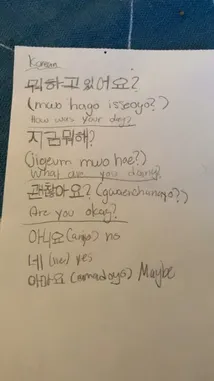 Korean
뭐하고 있어요?
(mwo hago isseoyo?)
How was your day?
지금뭐해?
(jigeum mwo hae?)
What are you doing?
괜찮아요? (gwaenchanayo?)
Are you okay?
아니요 (anijo) no
네 (ne) yes
아마요 (amadoyo) Maybe